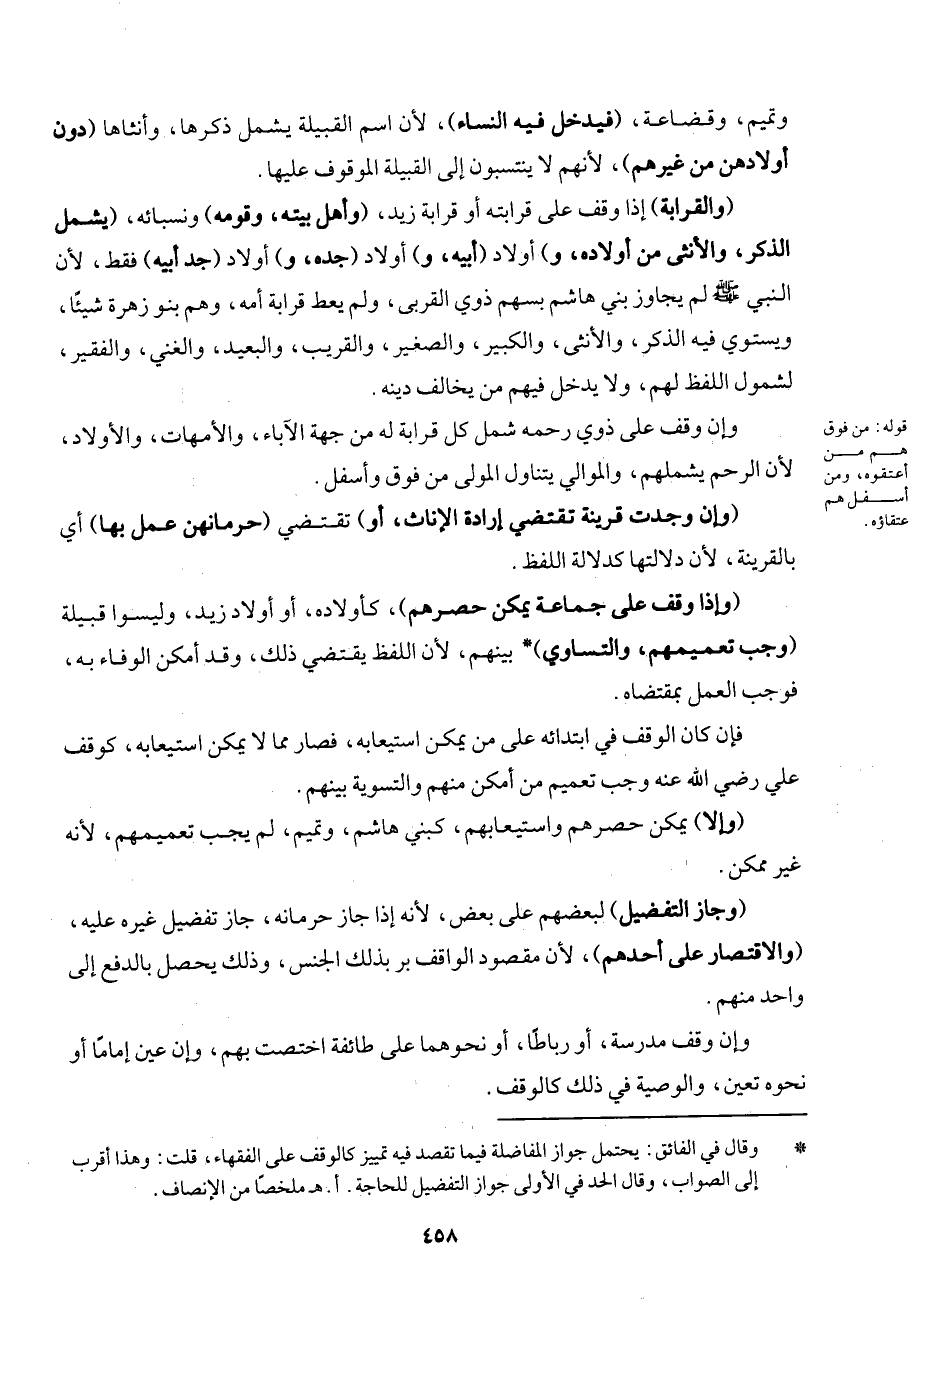 وتميم، وقضاعة، (فيدخل فيه النساء)، لأن اسم القبيلة يشمل ذكرها، وأنثاها (دون
أولادهن من غيرهم)، لأنهم لا ينتسبون إلى القبيلة الموقوف عليها.
(والقرابة) إذا وقف على قرابته أو قرابة زيد، (وأهل بيته، وقومه) ونسبائه، (يشمل
الذكر، والأنثى من أولاده، و) أولاد (أبيه، و) أولاد (جده، و) أولاد (جد أبيه) فقط، لأن
النبي ﷺ لم يجاوز بني هاشم بسهم ذوي القربى، ولم يعط قرابة أمه، وهم بنو زهرة شيئًا،
ويستوي فيه الذكر، والأنثى، والكبير، والصغير، والقريب، والبعيد، والغني، والفقير،
لشمول اللفظ لهم، ولا يدخل فيهم من يخالف دينه.
وإن وقف على ذوي رحمه شمل كل قرابة له من جهة الآباء، والأمهات، والأولاد،
لأن الرحم يشملهم، والموالي يتناول المولى من فوق وأسفل.
قوله: من فوق
هم من
أعتقوه، ومن
أسفل هم
عتقاؤه.
(وإن وجدت قرينة تقتضي إرادة الإناث، أو) تقتضي (حرمانهن عمل بها) أي
بالقرينة، لأن دلالتها كدلالة اللفظ.
(وإذا وقف على جماعة يمكن حصرهم)، كأولاده، أو أولاد زيد، وليسوا قبيلة
(وجب تعميمهم، والتساوي)* بينهم، لأن اللفظ يقتضي ذلك، وقد أمكن الوفاء به،
فوجب العمل بمقتضاه.
فإن كان الوقف في ابتدائه على من يمكن استيعابه، فصار مما لا يمكن استيعابه، كوقف
علي رضي الله عنه وجب تعميم من أمكن منهم والتسوية بينهم.
(وإلا) يمكن حصرهم واستيعابهم، كبني هاشم، وتميم، لم يجب تعميمهم، لأنه
غير ممكن.
(وجاز التفضيل) لبعضهم على بعض، لأنه إذا جاز حرمانه، جاز تفضيل غيره عليه،
(والاقتصار على أحدهم)، لأن مقصود الواقف بر بذلك الجنس، وذلك يحصل بالدفع إلى
واحد منهم.
وإن وقف مدرسة، أو رباطًا، أو نحوهما على طائفة اختصت بهم، وإن عين إمامًا أو
نحوه تعين، والوصية في ذلك كالوقف.
* وقال في الفائق: يحتمل جواز المفاضلة فيما تقصد فيه تمييز كالوقف على الفقهاء، قلت: وهذا أقرب
إلى الصواب، وقال الحد في الأولى جواز التفضيل للحاجة. أ. هـ ملخصًا من الإنصاف.
٤٥٨